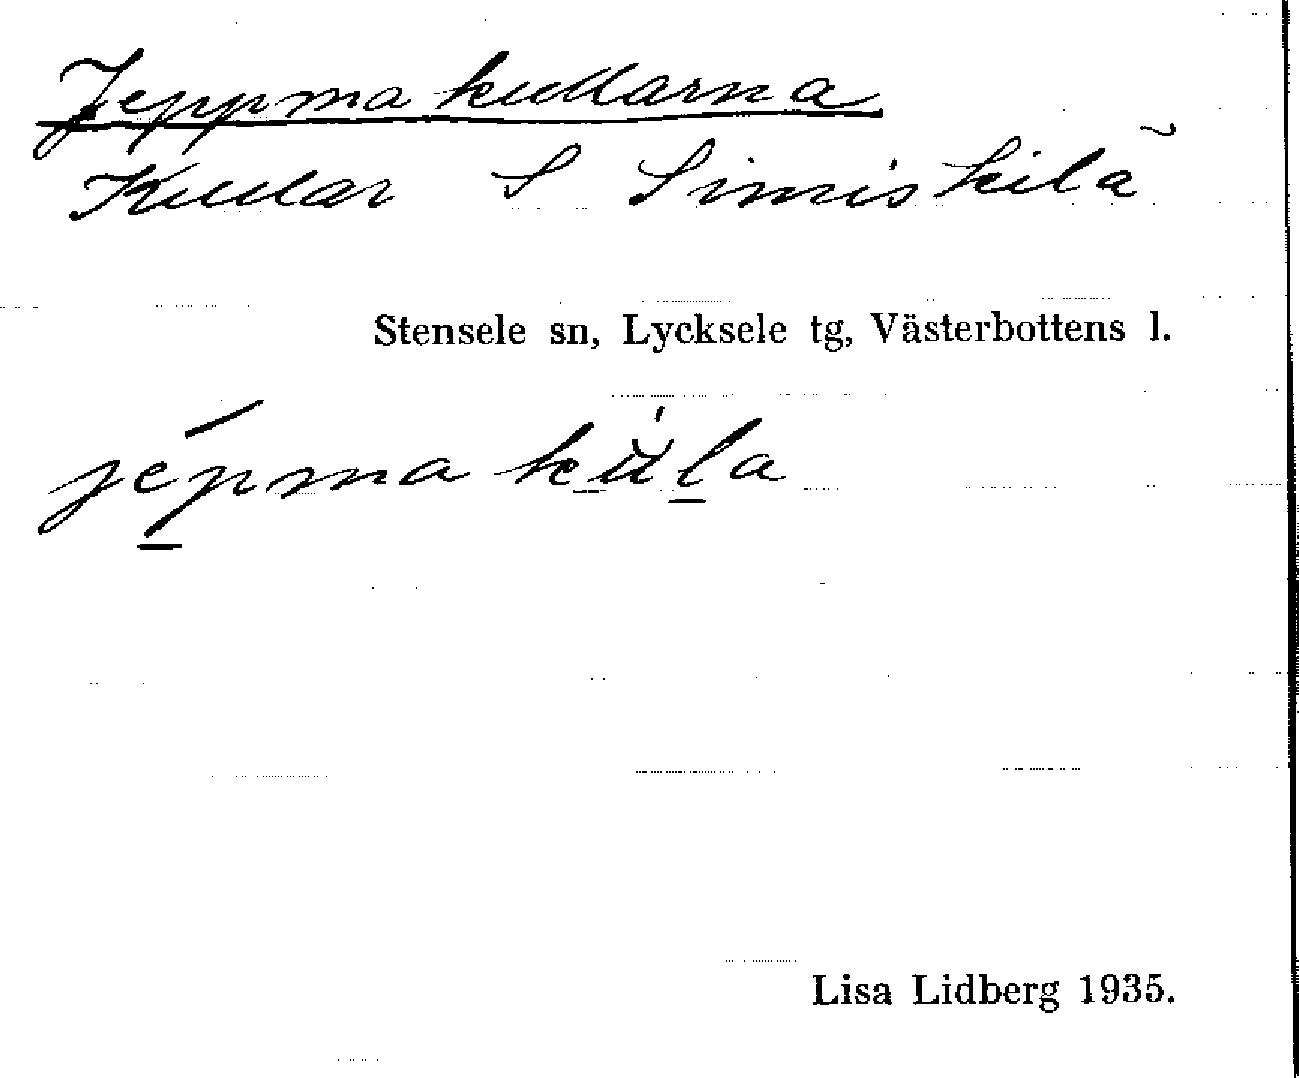 Jeppmakullarna
Kullar S Simiskilå
Stensele sn, Lycksele tg, Västerbottens l.
Lisa Lidberg 1935.